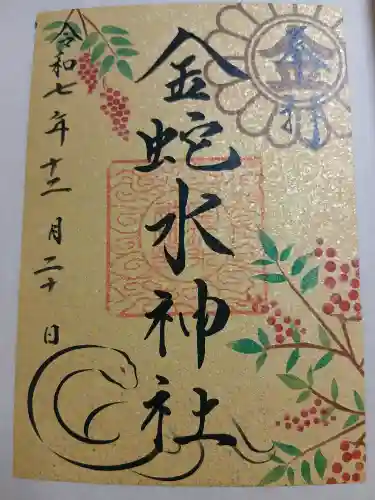 奉拝
金蛇水神社
令和七年十二月二十日